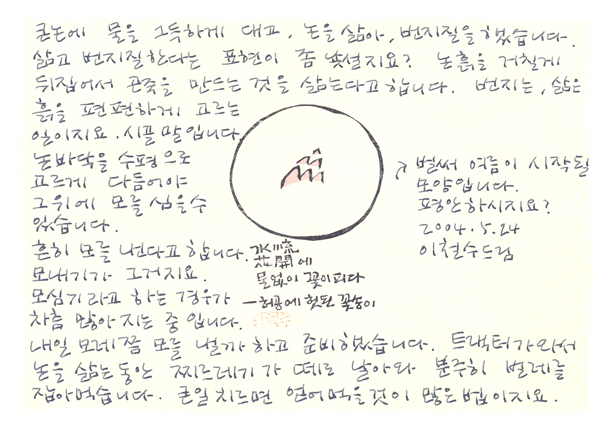 큰논에 물을 그득하게 대고, 논을 삶아, 번지질을 했습니다.
삶고 번지질한다는 표현이 좀 낯설지요? 논흙을 거칠게
뒤집어서 곤죽을 만드는 것을 삶는다고 합니다. 번지는, 삶은
흙을 편편하게 고르는
일이지요. 시골말입니다.
논바닥을 수평으로
고르게 다듬어야
그위에 모를 심을수
있습니다.
흔히 모를 낸다고 합니다.
모내기가 그거지요.
모심기라고 하는 경우가
차츰 많아지는 중입니다.
水流
花開에
물없이 꽃이피다
— 허공에 헛된 꽃송이
벌써 여름이 시작될
모양입니다.
평안하시지요?
2004.5.24
이철수드림
내일 모레쯤 모를 낼까 하고 준비했습니다. 트랙터가와서
논을 삶는동안 찌르레기가 떼로 날아와 분주히 벌레를
잡아먹습니다. 큰일 치르면 얻어먹을것이 많은 법이지요.